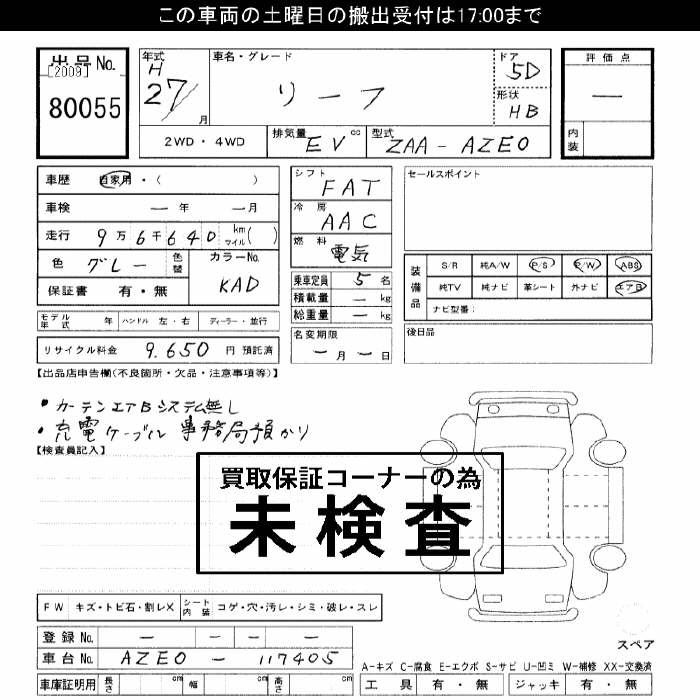 この車両の土曜日の搬出受付は17:00まで
出品No. [2009] 80055
年式 H 27/ 月
車名・グレード リーフ
ドア 5D
形状 HB
評価点 —
内装
2WD・4WD 排気量 EV cc 型式 ZAA-AZE0
車歴 自家用・( )
車検 — 年 — 月
走行 9万6千640 km マイル( )
色 グレー 色替 カラーNo. KAD
保証書 有・無
モデル年式 年 ハンドル 左・右 ディーラー・並行
リサイクル料金 9,650 円 預託済
シフト FAT
冷房 AAC
燃料 電気
乗車定員 5 名
積載量 — kg
総重量 — kg
名変期限 — 月 — 日
セールスポイント
装備品 S/R 純A/W P/S P/W ABS
純TV 純ナビ 革シート 外ナビ エアB
ナビ型番:
後日品
【出品店申告欄(不良箇所・欠品・注意事項等)】
・カーテンエアBシステム無し
・充電ケーブル 事務局預かり
【検査員記入】
買取保証コーナーの為
未検査
FW キズ・トビ石・割レX シート内装 コゲ・穴・汚レ・シミ・破レ・スレ
登録No. — —
車台No. AZE0 - 117405
車庫証明用 長さ cm 幅 cm 高さ cm
スペア
A-キズ C-腐食 E-エクボ S-サビ U-凹ミ W-補修 XX-交換済
工具 有・無 ジャッキ 有・無